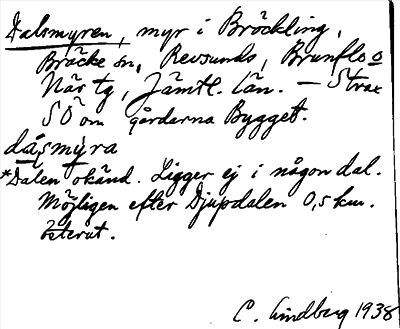 Dalsmyren, myr i Bröckling,
Bräcke sn, Revsunds, Brunflo o
När tg, Jämtl. län. — Strax
SÖ om gårdarna Bygget.
dáşmy̆ra
*Dalen okänd. Ligger ej i någon dal.
Möjligen efter Djupdalen 0,5 km.
österut.
C. Lindberg 1938